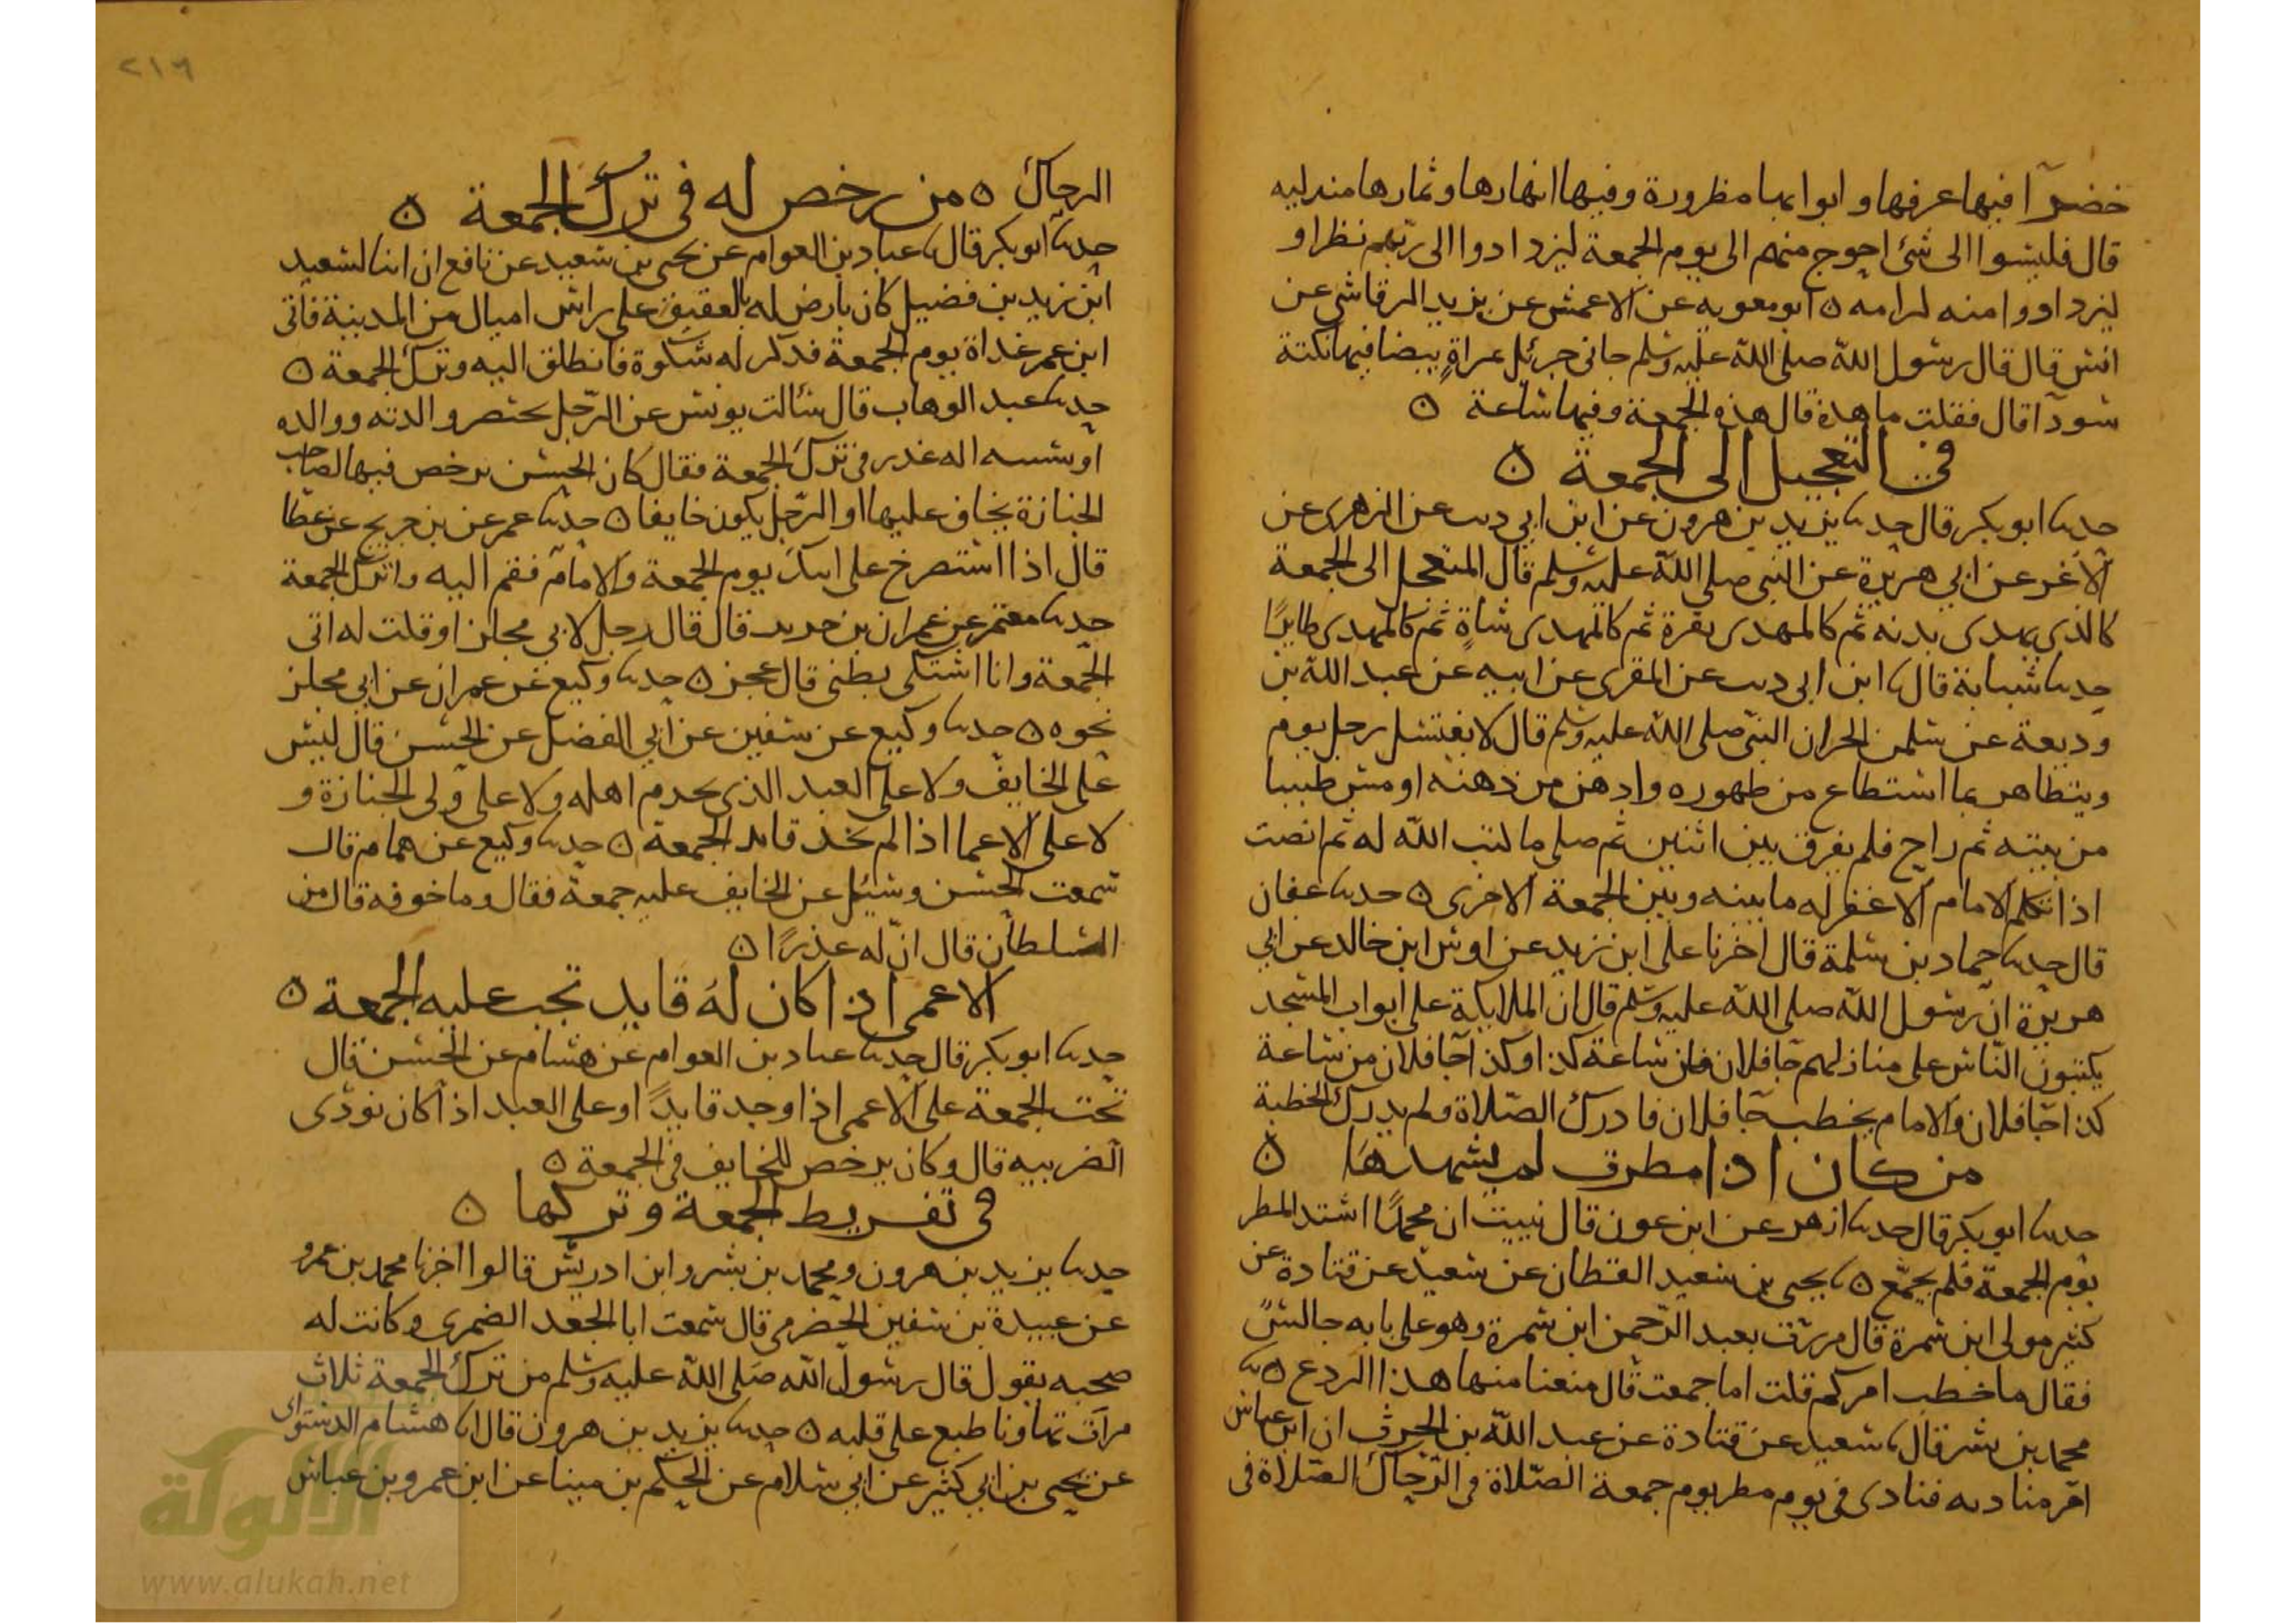 خضرآ فيها عرفها و ابوابها مطرورة وفيها انهارها وثمارها متدليه
قال فليسوا الى شئ احوج منهم الى يوم الجمعة ليزدادوا الى ربّهم نظرا و
ليزدادوا منه كرامه ٥ ابو معويه عن الاعمش عن يزيد الرقاشي عن
انس قال قال رسول اللّه صلى اللّه عليه وسلم جاني جبرئل بمراةٍ بيضا فيها نكتة
سودآ قال فقلت ما هذه قال هذه الجمعة وفيها ساعة ٥
في التعجيل الى الجمعة ٥
حدثنا ابو بكر قال حدثنا يزيد بن هرون عن ابن ابي ديب عن الزهرى عن
الاغر عن ابي هريرة عن النبى صلى اللّه عليه وسلم قال المتعجل الى الجمعة
كالذى يهدى بدنه ثم كالمهدى بقرة ثم كالمهدى شاةٍ ثم كالمهدى طايرًا
حدثنا شبابة قال نا ابن ابى ديب عن المقبرى عن ابيه عن عبد اللّه بن
وديعة عن سلمن الخير ان النبى صلى اللّه عليه وسلم قال لا يغتسل رجل يوم
ويتظاهر بما استطاع من طهوره وادهن من دهنه او مس طيبا
من بيته ثم راح فلم يفرق بين اثنين ثم صلى ما كتب اللّه له ثم انصت
اذا تكلم الامام الا غفر له ما بينه وبين الجمعة الاخرى ٥ حدثنا عفان
قال حدثنا حماد بن سلمة قال اخبرنا على ابن زيد عن اوس ابن خالد عن ابي
هريرة ان رسول اللّه صلى اللّه عليه وسلم قال ان الملايكة على ابواب المسجد
يكتبون النّاس على منازلهم جآ فلان من ساعة كذا وكذا جآ فلان من ساعة
كذا جآ فلان والامام يخطب جآ فلان فادرك الصّلاة ولم يدرك الخطبة
من كان اذا مطرت لم يشهدها ٥
حدثنا ابو بكر قال حدثنا ازهر عن ابن عون قال نبيت ان محمدًا اشتد المطر
يوم الجمعة فلم يجمّع ٥ نا يحيى بن سعيد القطان عن سعيد عن قتادة عن
كثير مولى ابن سمرة قال مررت بعبد الرّحمن ابن سمرة وهو على بابه جالسً
فقال ما خطب امركم قلت اما جمعت قال منعنا منها هذا الردع ٥ نا
محمد بن بشر قال نا سعيد عن قتادة عن عبد اللّه بن الحرث ان ابن عباس
امر مناديه فنادى فى يوم مطر يوم جمعة الصّلاة في الرّحال الصّلاة فى
٢١٦
الرحال ٥ من رخص له فى ترك الجمعة ٥
حدثنا ابو بكر قال نا عباد بن العوام عن يحيى بن سعيد عن نافع ان ابنا لسعيد
ابن زيد بن فضيل كان بارض له بالعقيق على راس اميال من المدينة فاتى
ابن عمر غداة يوم الجمعة فذكر له شكوة فانطلق اليه وترك الجمعة ٥
حدثنا عبد الوهاب قال سالت يونس عن الرّجل يحتضر والدته ووالده
او نسيبه اله عذر فى ترك الجمعة فقال كان الحسن يرخص فيها لصاحب
الجنازة يخاف عليها او الرّجل يكون خايفا ٥ حدثنا عمر عن بن جريج عن عطا
قال اذا استصرخ على ابيك يوم الجمعة والامام فقم اليه واترك الجمعة
حدثنا معتمر عن عمران بن حدير قال قال رجل لابي مجلز او قلت له اتى
الجمعة وانا اشتكى بطنى قال عجز ٥ حدثنا وكيع عن عمران عن ابي مجلز
نحوه ٥ حدثنا وكيع عن سفين عن ابي الفضل عن الحسن قال ليس
على الخايف ولا على العبد الذى يخدم اهله ولا على ولى الجنازة و
لا على الاعما اذا لم يجد قايد الجمعة ٥ حدثنا وكيع عن همام قال
سمعت الحسن وسئل عن الخايف عليه جمعة فقال وما خوفه قال من
السلطان قال انّ له عذرًا ٥
الاعمى اذا كان له قايد تجب عليه الجمعة ٥
حدثنا ابو بكر قال حدثنا عباد بن العوام عن هشام عن الحسن قال
تجب الجمعة على الاعمى اذا وجد قايدً او على العبد اذا كان يودّى
الضريبه قال وكان يرخص للخايف فى الجمعة ٥
فى تفريط الجمعة وتركها ٥
حدثنا يزيد بن هرون ومحمد بن بشر وابن ادريس قالوا اخبرنا محمد بن عمرو
عن عبيدة بن سفين الحضرمى قال سمعت ابا الجعد الضمرى وكانت له
صحبه يقول قال رسول اللّه صلى اللّه عليه وسلم من ترك الجمعة ثلاث
مرات تهاونا طبع على قلبه ٥ حدثنا يزيد بن هرون قال انا هشام الدستواى
عن يحيى بن ابي كثير عن ابي سلام عن الحكم بن مينا عن ابن عمر وبن عباس
الألوكة
www.alukah.net